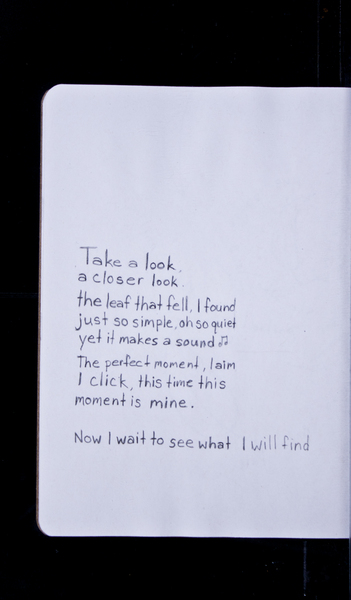 Take a look,
a closer look.
the leaf that fell, I found
just so simple, oh so quiet
yet it makes a sound ♫
The perfect moment, I aim
I click, this time this
moment is mine.
Now I wait to see what I will find